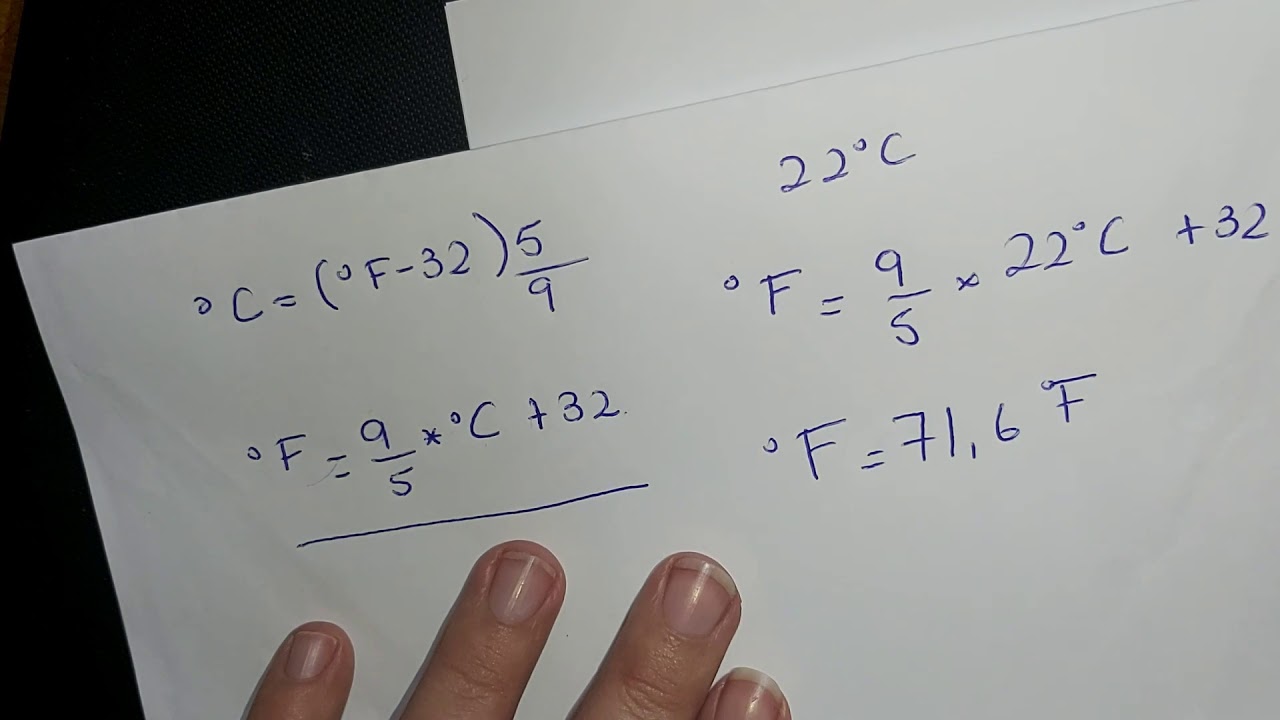 °C = (°F - 32) 5/9
°F = 9/5 * °C + 32
22°C
°F = 9/5 * 22°C + 32
°F = 71,6 °F